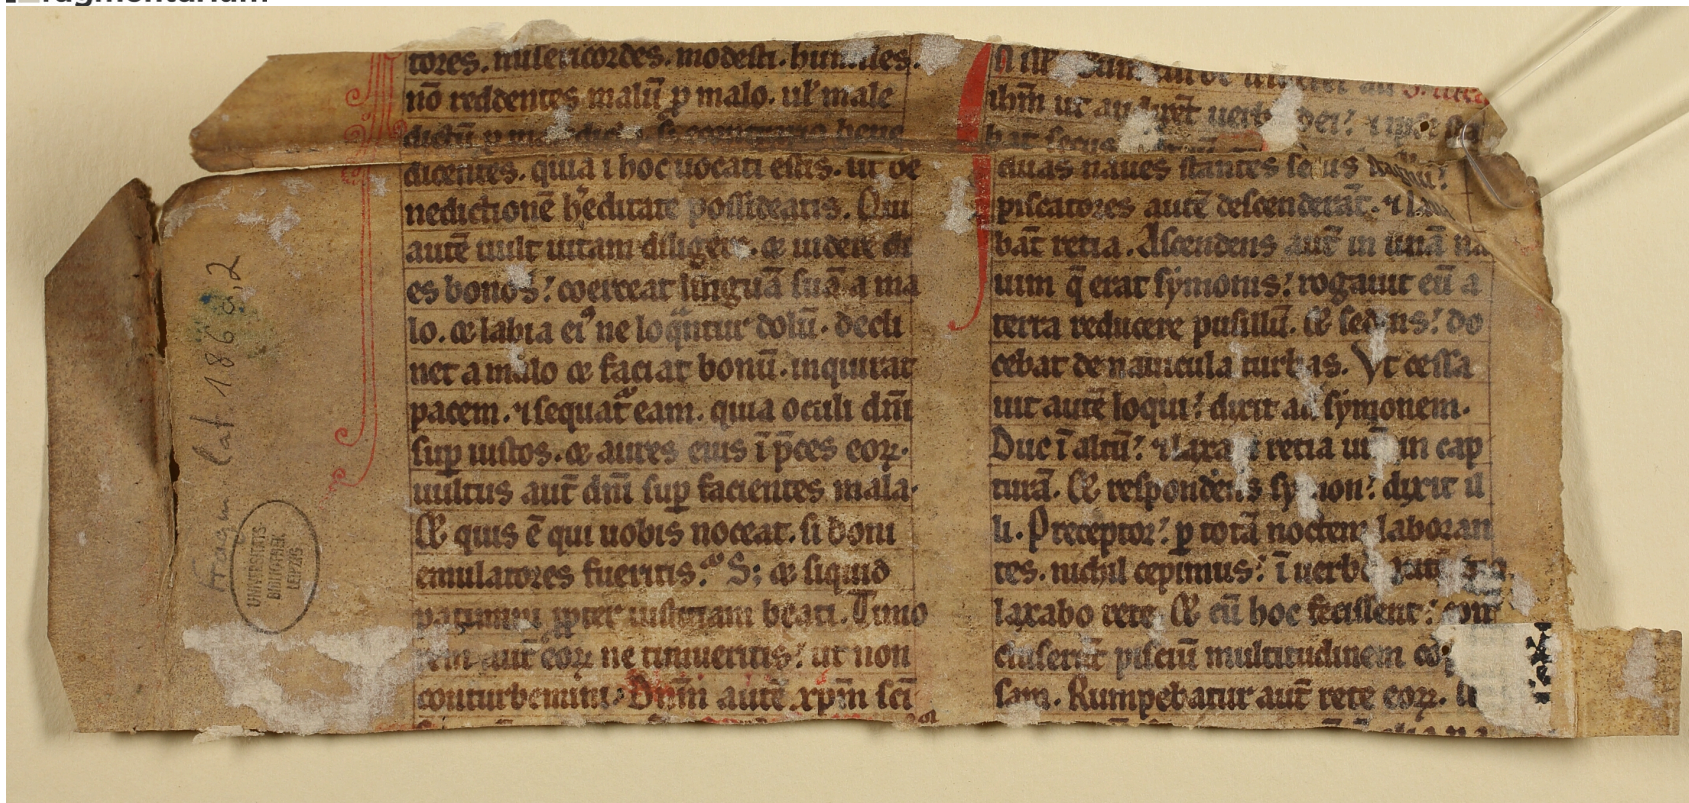 tores. misericordes. modesti. humiles.
nō reddentes malū p malo. ul' male
dictū p
dicentes. quia ī hoc uocati estis. ut be
nedictionē h'editate possideatis. Qui
autē uult uitam diligere. & uidere di
es bonos: coerceat linguā suā a ma
lo. & labia ei⁹ ne loqͣntur dolū. decli
net a malo & faciat bonū. inquirat
pacem. ⁊ sequat᷑ eam. quia oculi dn̄i
sup̱ iustos. & aures eius ī p̄ces eoꝝ.
uultus aut̄ dn̄i sup̱ facientes mala.
Et quis ē qui uobis noceat. si boni
emulatores fueritis. S; & siquid
patimini ꝓpter iustitiam beati. Timo
rem aut̄ eoꝝ ne timueritis: ut non
conturbemini. Dn̄m autē xp̄m sc̄i
ihm̄ ut audiret uerb dei:
duas naues stantes secus
piscatores autē descenderāt. ⁊ la
bāt retia. Ascendens aut̄ in unā na
uim q̄ erat symonis: rogauit eū a
terra reducere pusillū. Et sedens: do
cebat de nauicula turbas. Vt cessa
uit autē loqui: dixit ad symonem.
Duc ī altū: ⁊ laxa retia in cap
turā. Et respondens symon: dixit il
li. Preceptor: p̱ totā noctem laboran
tes. nichil cepimus: ī uerbo
laxabo rete. Et cū hoc fecissent: con
cluserūt pisciū multitudinem
sam. Rumpebatur aut̄ rete eoꝝ.
Fragm. lat. 186
UNIVERSITÄTS
BIBLIOTHEK
LEIPZIG